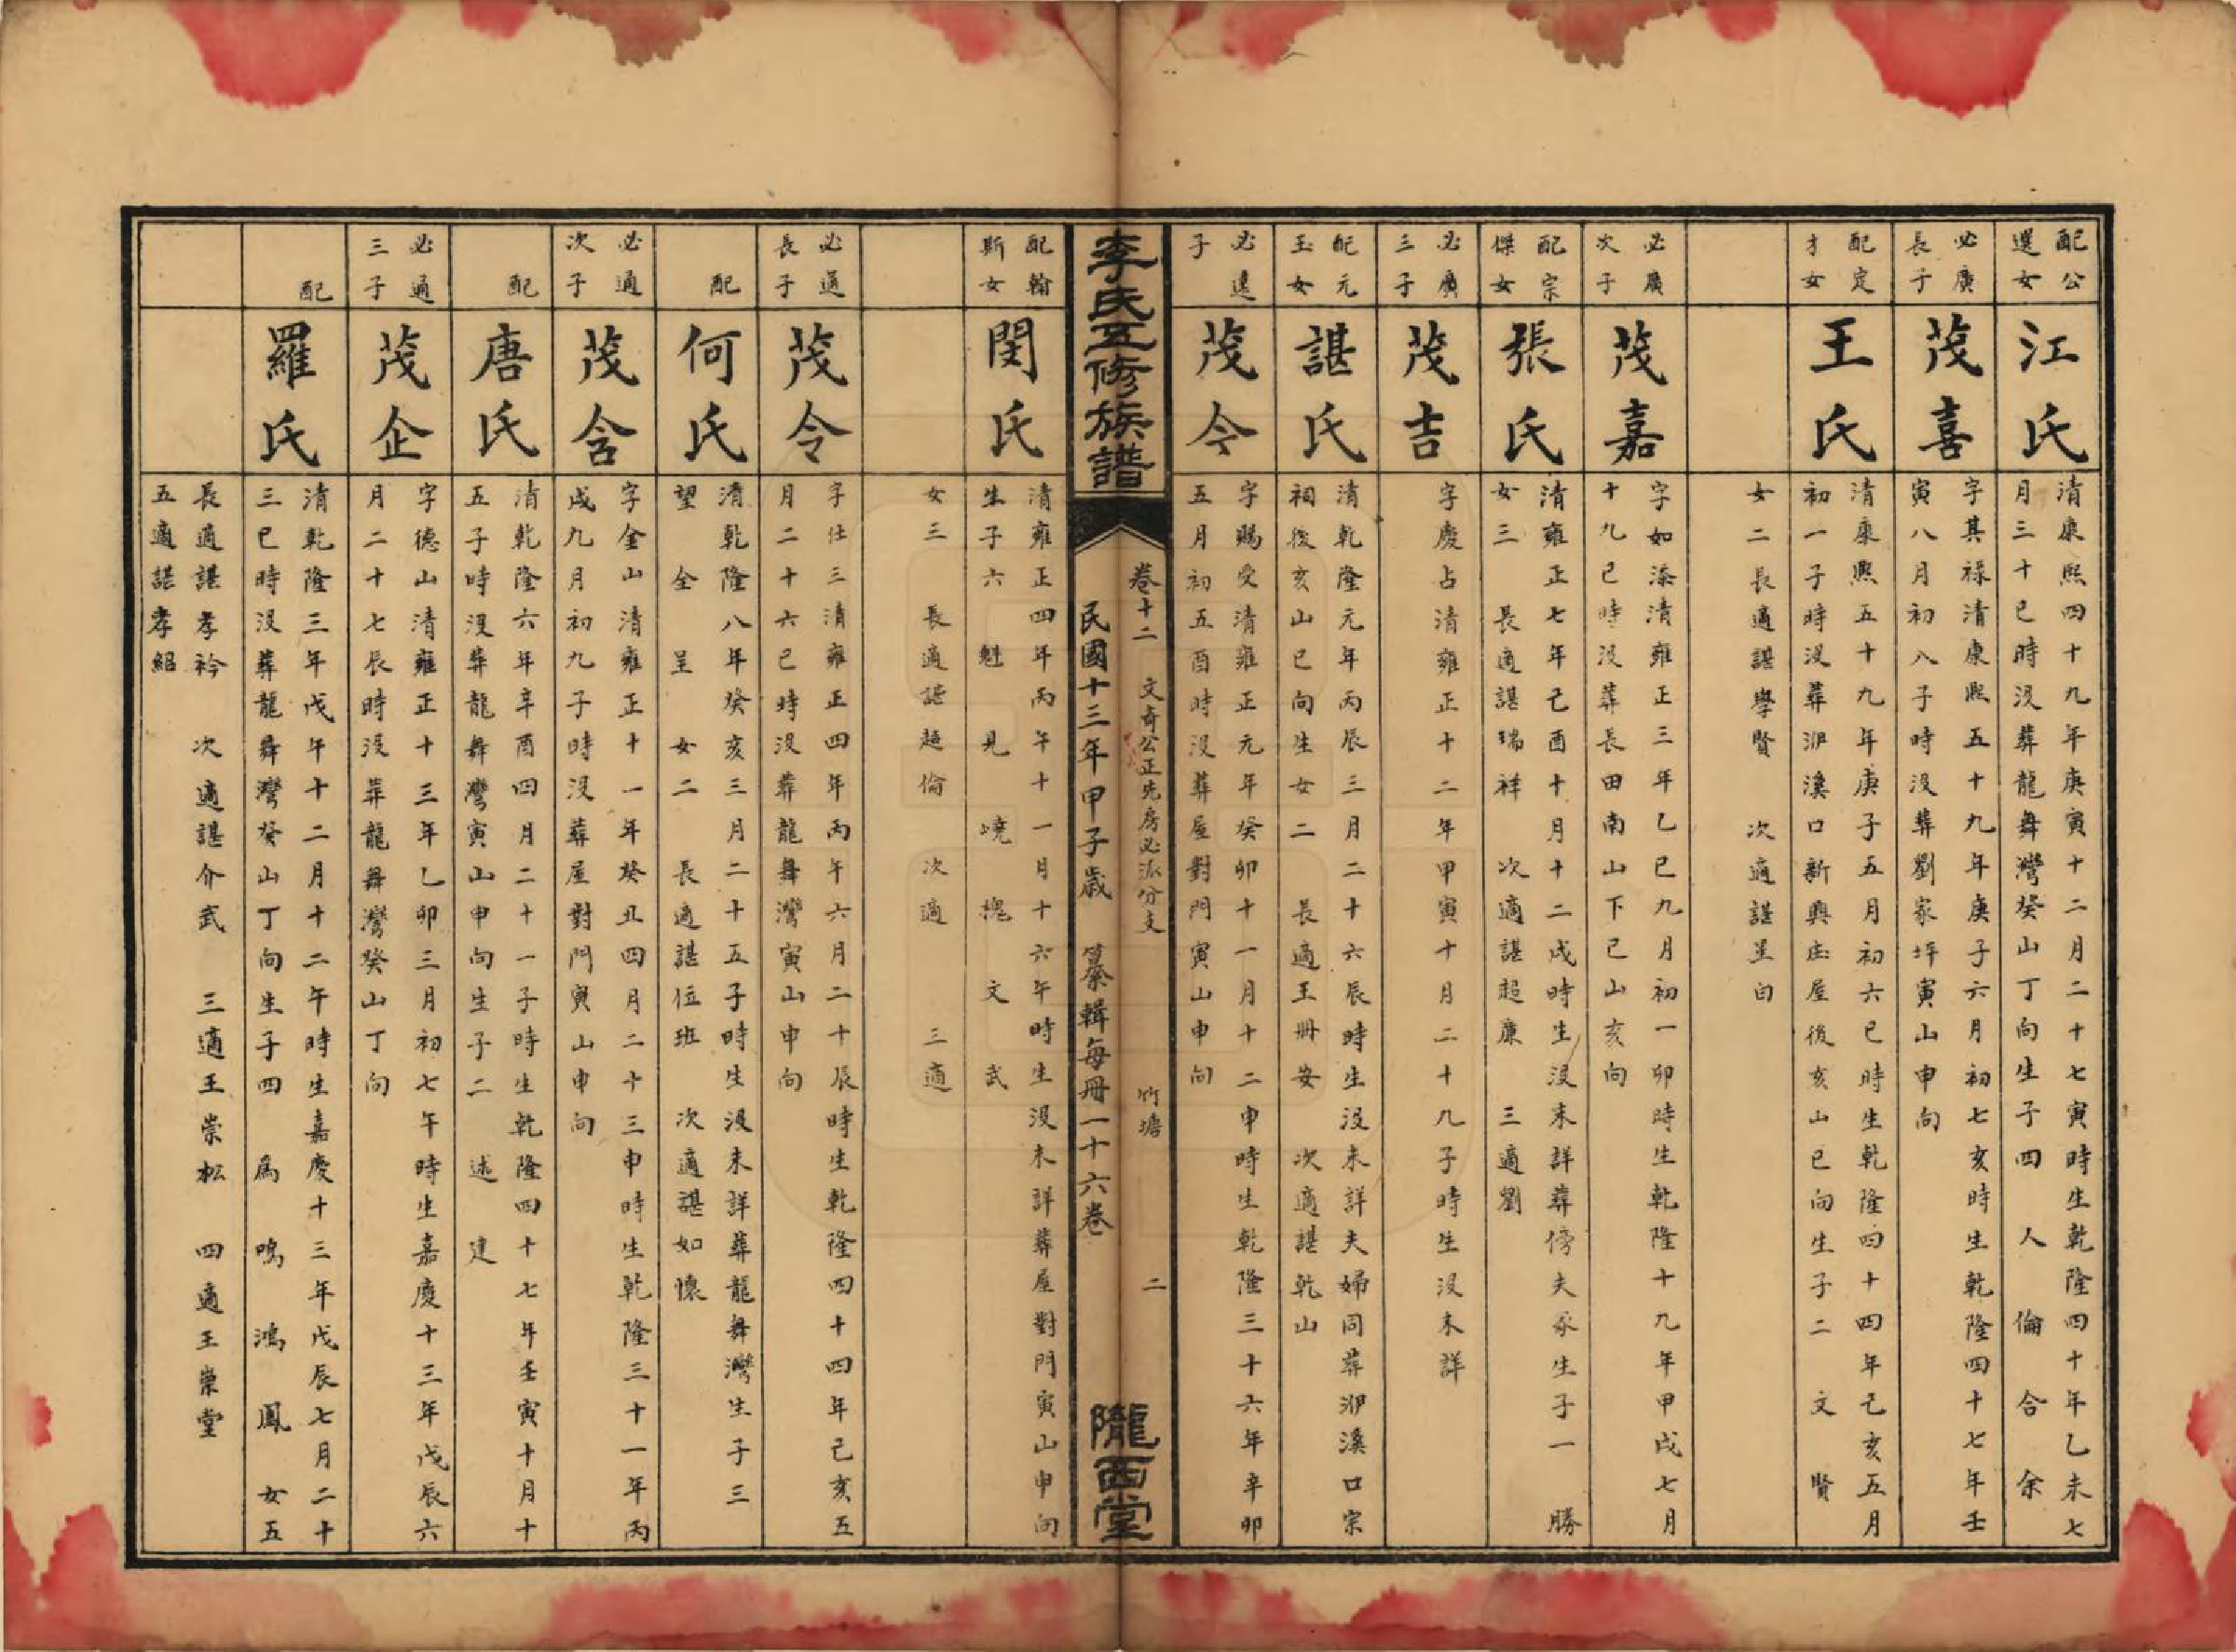 配公選女
江氏
清康熙四十九年庚寅十二月二十七寅時生乾隆四十年乙未七
月三十巳時沒葬龍舞灣癸山丁向生子四 人 倫 合 余
必廣長子
茂喜
字其祿清康熙五十九年庚子六月初七亥時生乾隆四十七年壬
寅八月初八子時沒葬劉家坪寅山申向
配定才女
王氏
清康熙五十九年庚子五月初六巳時生乾隆四十四年己亥五月
初一子時沒葬泖溪口新興庄屋後亥山巳向生子二 文 賢
女二 長適諶學賢 次適諶呈白
必廣次子
茂嘉
字如添清雍正三年乙巳九月初一卯時生乾隆十九年甲戌七月
十九巳時沒葬長田南山下巳山亥向
配宗傑女
張氏
清雍正七年己酉十月十二戌時生沒未詳葬傍夫冢生子一 勝
女三 長適諶瑞祥 次適諶超廉 三適劉
必廣三子
茂吉
字慶占清雍正十二年甲寅十月二十九子時生沒未詳
配元玉女
諶氏
清乾隆元年丙辰三月二十六辰時生沒未詳夫婦同葬泖溪口宗
祠後亥山巳向生女二 長適王册安 次適諶乾山
必選子
茂今
字賜受清雍正元年癸卯十一月十二申時生乾隆三十六年辛卯
五月初五酉時沒葬屋對門寅山申向
李氏五修族譜
卷十二 文奇公正先房必派分支 竹塘 二
民國十三年甲子歲 纂輯每冊一十六卷
隴西堂
配翰斯女
閔氏
清雍正四年丙午十一月十六午時生沒未詳葬屋對門寅山申向
生子六 魁 見 嶢 槐 文 武
女三 長適諶超倫 次適 三適
必通長子
茂令
字仕三清雍正四年丙午六月二十辰時生乾隆四十四年己亥五
月二十六巳時沒葬龍舞灣寅山申向
配
何氏
清乾隆八年癸亥三月二十五子時生沒未詳葬龍舞灣生子三
望 全 呈 女二 長適諶位班 次適諶如懷
必通次子
茂含
字金山清雍正十一年癸丑四月二十三申時生乾隆三十一年丙
戌九月初九子時沒葬屋對門寅山申向
配
唐氏
清乾隆六年辛酉四月二十一子時生乾隆四十七年壬寅十月十
五子時沒葬龍舞灣寅山申向生子二 述 建
必通三子
茂企
字德山清雍正十三年乙卯三月初七午時生嘉慶十三年戊辰六
月二十七辰時沒葬龍舞灣癸山丁向
配
羅氏
清乾隆三年戊午十二月十二午時生嘉慶十三年戊辰七月二十
三巳時沒葬龍舞灣癸山丁向生子四 為 鳴 鴻 鳳 女五
長適諶孝衿 次適諶介武 三適王崇松 四適王崇堂
五適諶孝紹